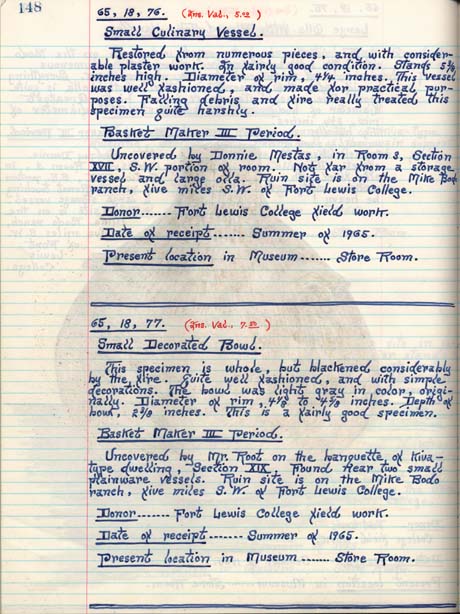 148
65, 18, 76. (Ins. Val., 5.00)
Small Culinary Vessel.
Restored from numerous pieces, and with consider-
able plaster work. In fairly good condition. Stands 5¾
inches high. Diameter of rim, 4¼ inches. This vessel
was well fashioned, and made for practical pur-
poses. Falling debris and fire really treated this
specimen quite harshly.
Basket Maker III Period.
Uncovered by Donnie Mestas, in Room 3, Section
XVII, S.W. portion of room. Not far from a storage
vessel and large olla. Ruin site is on the Mike Bodo
ranch, five miles S.W. of Fort Lewis College.
Donor....... Fort Lewis College field work.
Date of receipt....... Summer of 1965.
Present location in Museum....... Store Room.
65, 18, 77. (Ins. Val., 7.50)
Small Decorated Bowl.
This specimen is whole, but blackened considerably
by the fire. Quite well fashioned, and with simple
decorations. The bowl was light gray in color, origi-
nally. Diameter of rim, to inches. Depth of
bowl, inches. This is a fairly good specimen.
Basket Maker III Period.
Uncovered by Mr. Root on the banquette of Kiva-
type dwelling, Section XIX. Found near two small
Plainware vessels. Ruin site is on the Mike Bodo
ranch, five miles S.W. of Fort Lewis College.
Donor....... Fort Lewis College field work.
Date of receipt....... Summer of 1965.
Present location in Museum....... Store Room.